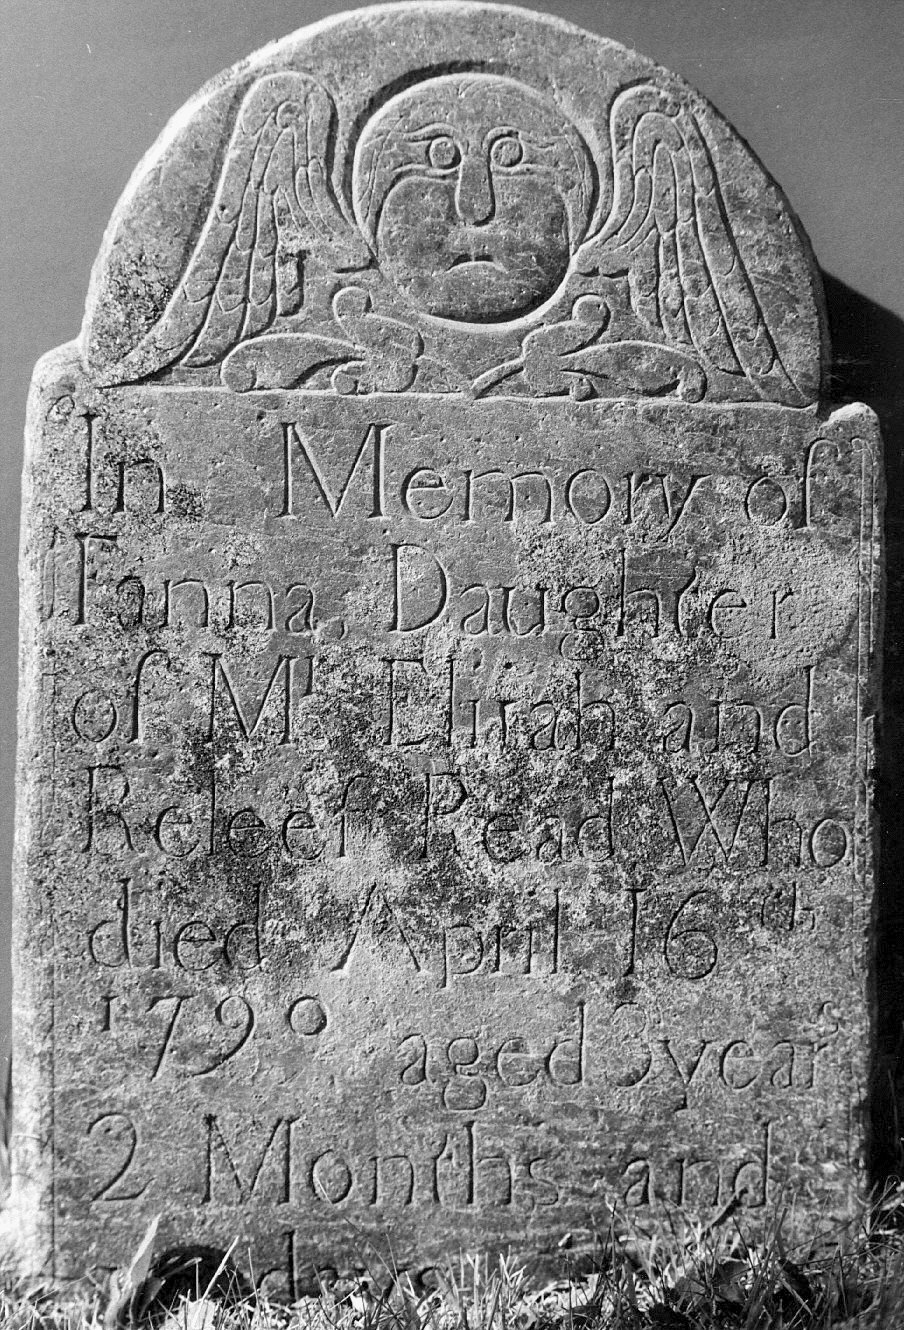 In Memory of
Fanna, Daughter
of Mr Elijah and
Releef Read Who
died April 16th
1790 aged 3 years
2 Months and
days